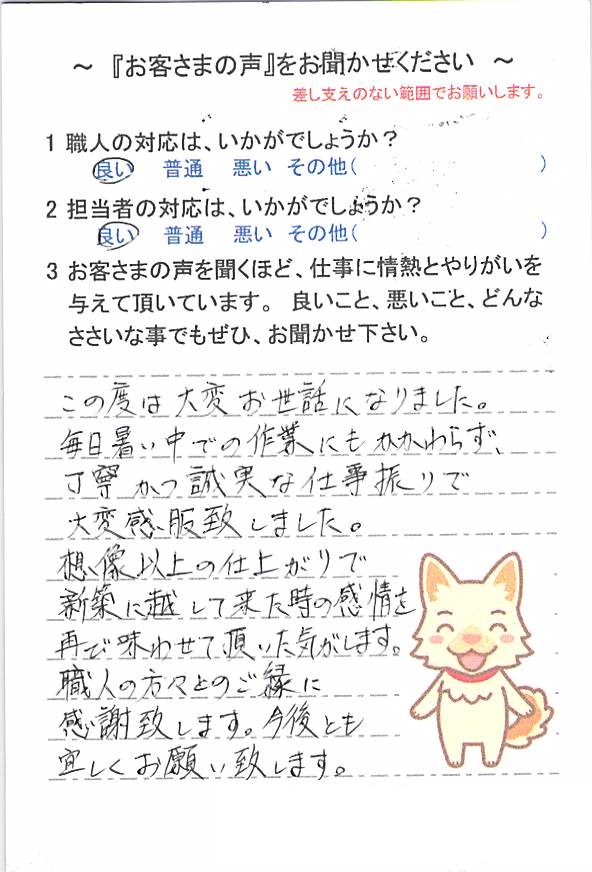 ～ 『お客さまの声』をお聞かせください ～
差し支えのない範囲でお願いします。
1 職人の対応は、いかがでしょうか？
良い 普通 悪い その他( )
2 担当者の対応は、いかがでしょうか？
良い 普通 悪い その他( )
3 お客さまの声を聞くほど、仕事に情熱とやりがいを
与えて頂いています。 良いこと、悪いごと、どんな
ささいな事でもぜひ、お聞かせ下さい。
この度は大変お世話になりました。
毎日暑い中での作業にもかかわらず、
丁寧かつ誠実な仕事振りで
大変感服致しました。
想像以上の仕上がりで
新築に越して来た時の感情を
再び味わせて頂いた気がします。
職人の方々とのご縁に
感謝致します。今後とも
宜しくお願い致します。